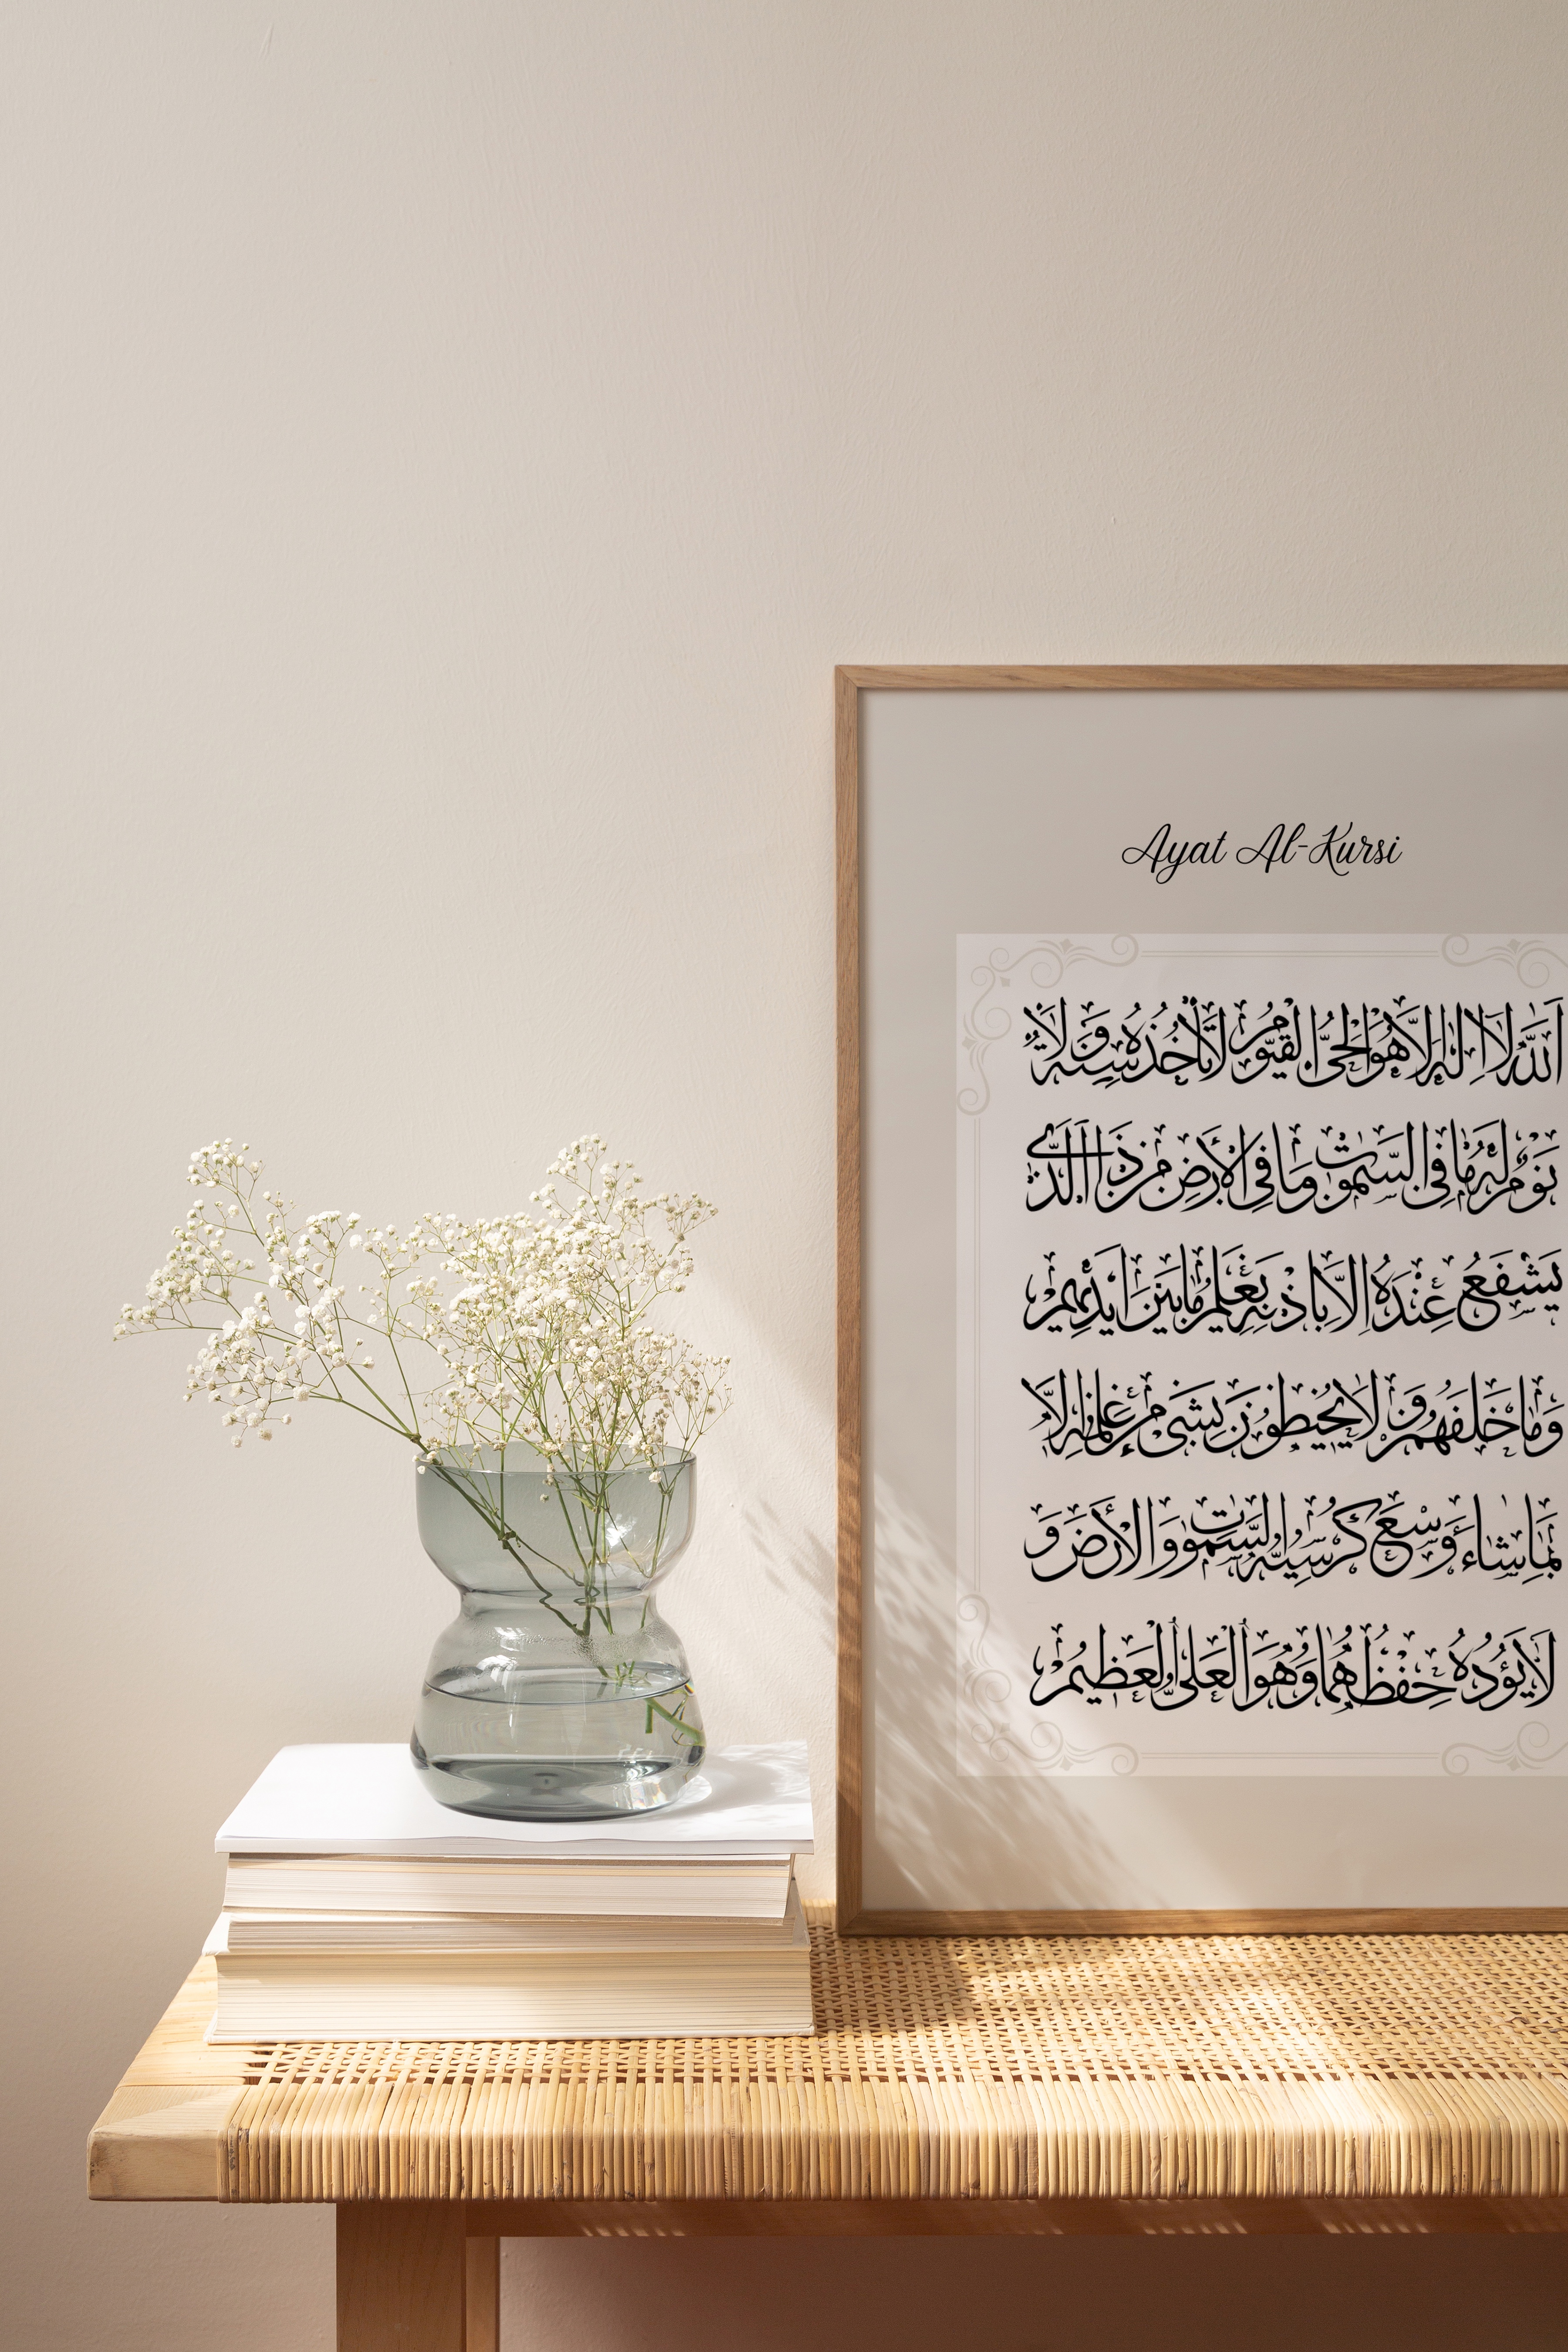 Ayat Al-Kursi
اَللّٰهُ لَا اِلٰهَ اِلَّا هُوَ الْحَیُّ الْقَیُّوْمُ لَا تَاْخُذُهٗ سِنَةٌ وَّلَا
نَوْمٌ لَهٗ مَا فِی السَّمٰوٰتِ وَمَا فِی الْاَرْضِ مَنْ ذَا الَّذِیْ
یَشْفَعُ عِنْدَهٗ اِلَّا بِاِذْنِهٖ یَعْلَمُ مَا بَیْنَ اَیْدِیْهِمْ
وَمَا خَلْفَهُمْ وَلَا یُحِیْطُوْنَ بِشَیْءٍ مِّنْ عِلْمِهٖ اِلَّا
بِمَا شَآءَ وَسِعَ كُرْسِیُّهُ السَّمٰوٰتِ وَالْاَرْضَ وَ
لَا یَئُوْدُهٗ حِفْظُهُمَا وَهُوَ الْعَلِیُّ الْعَظِیْمُ